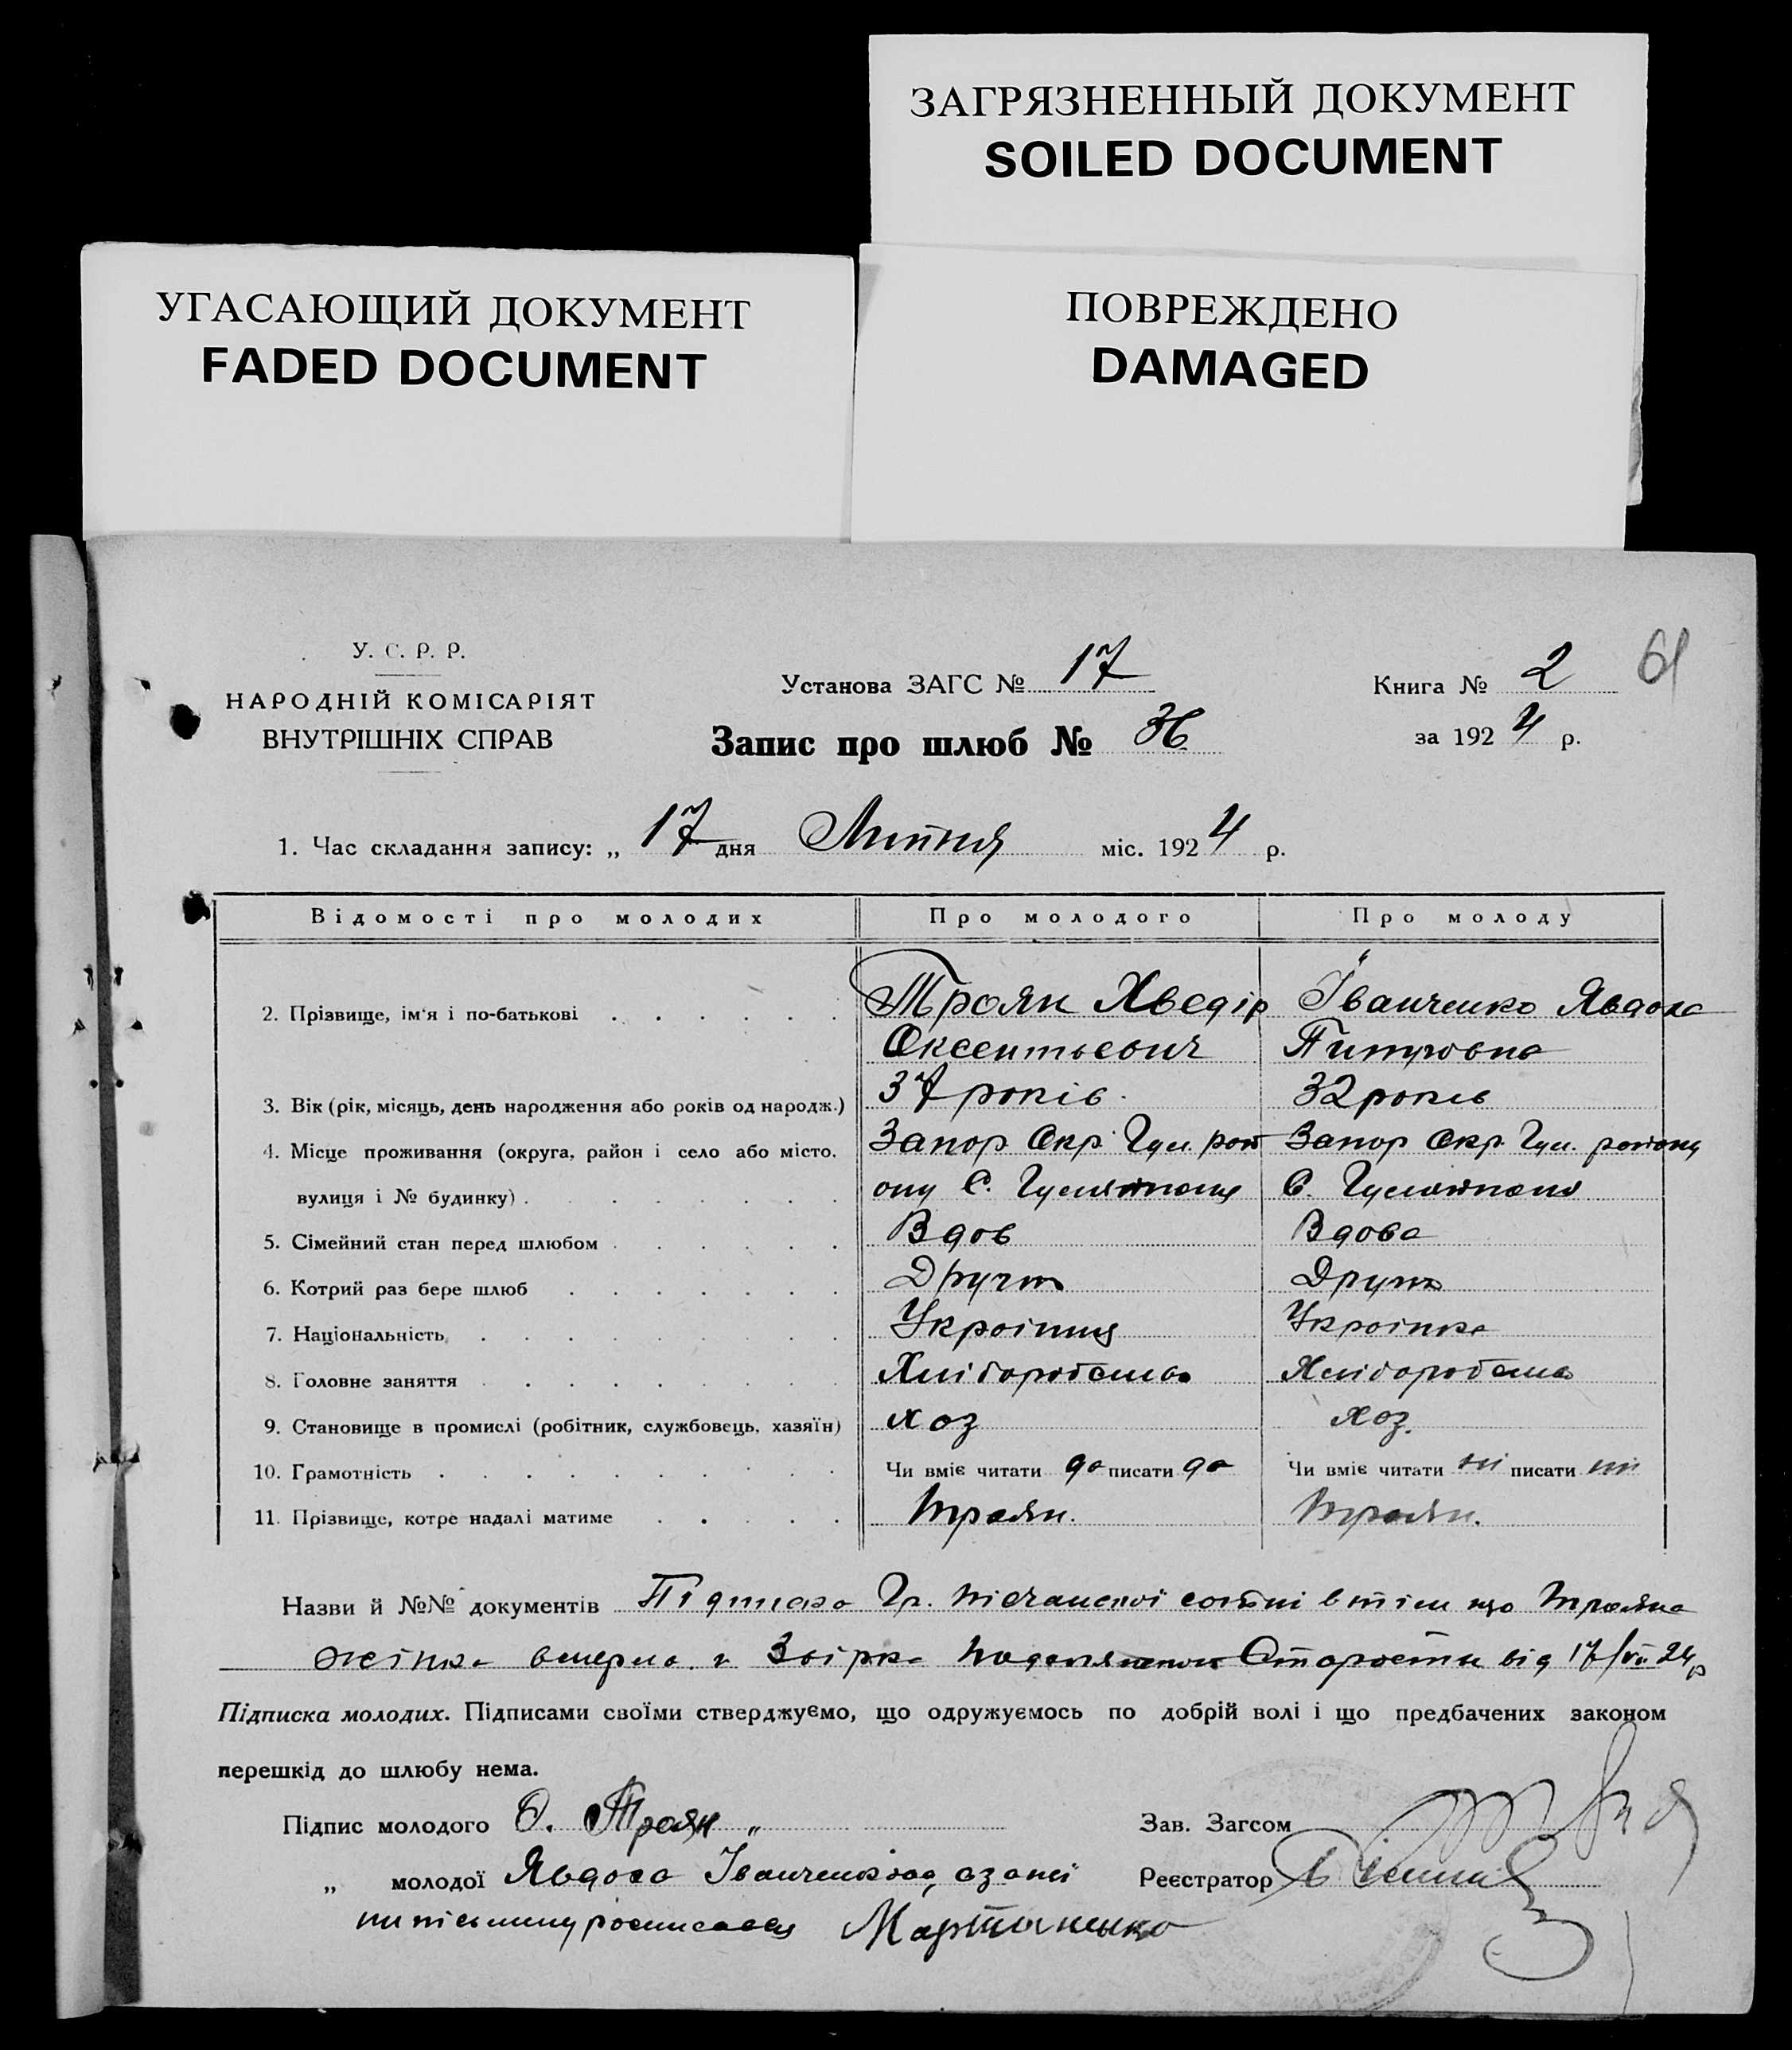 ЗАГРЯЗНЕННЫЙ ДОКУМЕНТ
SOILED DOCUMENT
УГАСАЮЩИЙ ДОКУМЕНТ
FADED DOCUMENT
ПОВРЕЖДЕНО
DAMAGED
У. С. Р. Р.
НАРОДНІЙ КОМІСАРІЯТ
ВНУТРІШНІХ СПРАВ
Установа ЗАГС № 17
Книга № 2
61
Запис про шлюб № 36
за 1924 р.
1. Час складання запису: „ 17 дня Липня міс. 1924 р.
Відомості про молодих Про молодого Про молоду
2. Прізвище, ім'я і по-батькові Троян Хведір Іванченко Явдоха
Оксентьевич
3. Вік (рік, місяць, день народження або років од народж.) 37 років. 32 років
4. Місце проживання (округа, район і село або місто, Запор Окр. Гул. рай Запор Окр. Гул. району
вулиця і № будинку) ону С. С.
5. Сімейний стан перед шлюбом Вдов Вдова
6. Котрий раз бере шлюб Другий Другий
7. Національність Українець Українка
8. Головне заняття Хліборобство Хліборобство
9. Становище в промислі (робітник, службовець, хазяїн) хоз хоз.
10. Грамотність Чи вміє читати да писати да Чи вміє читати ні писати ні
11. Прізвище, котре надалі матиме Троян. Троян.
Назви й №№ документів Підписка Гр. сотні в тім що Трояна
жінка вмерла і Старости від 17/VII 24р
Підписка молодих. Підписами своїми стверджуємо, що одружуємось по добрій волі і що предбачених законом
перешкід до шлюбу нема.
Підпис молодого Ѳ. Троян „
Зав. Загсом
„ молодої Явдоха а за неї
Реєстратор
росписався Мартыненко